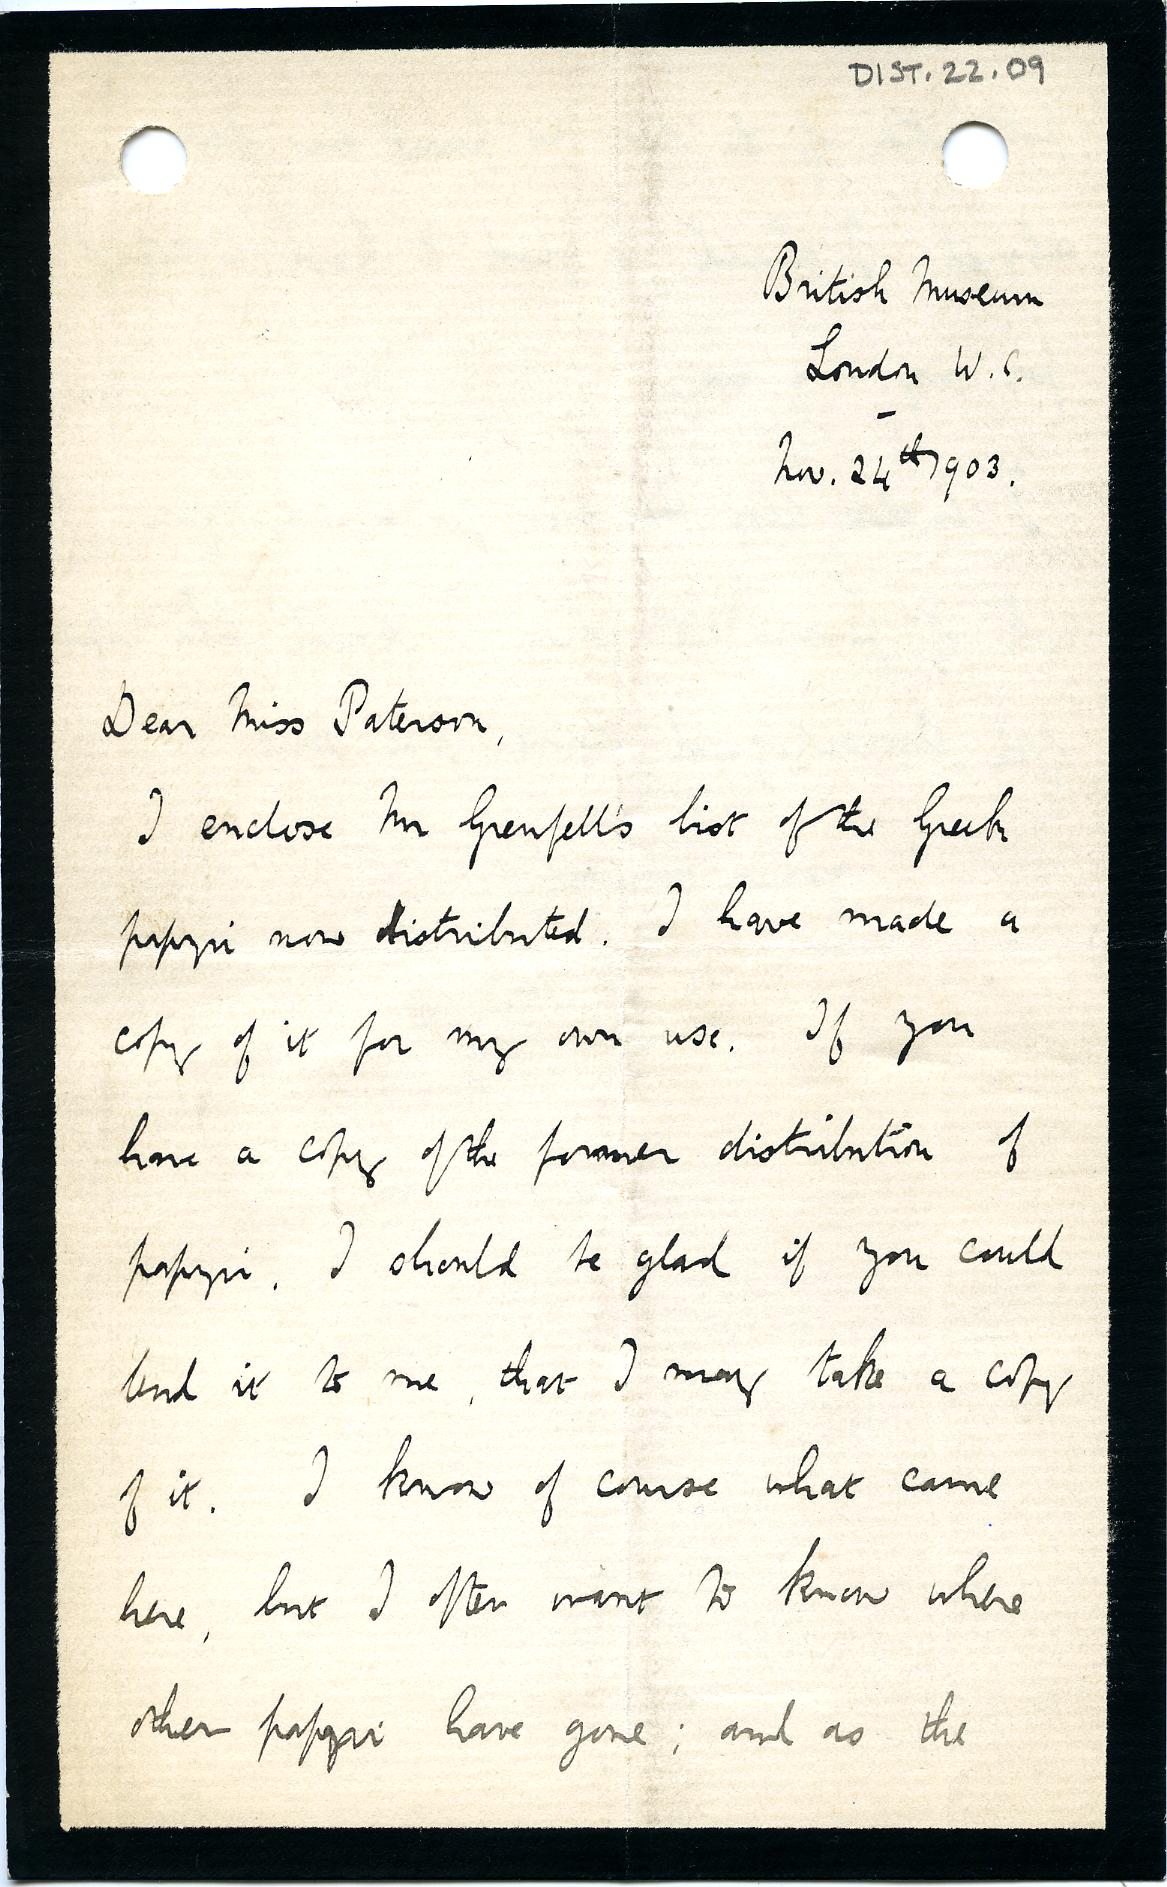 DIST. 22. 09
British Museum
London W.C.
Nov. 24th 1903.
Dear Miss Paterson,
I enclose Mr Grenfell's list of the Greek
papyri now distributed. I have made a
copy of it for my own use. If you
have a copy of the former distribution of
papyri, I should be glad if you could
lend it to me, that I may take a copy
of it. I know of course what came
here, but I often want to know where
other papyri have gone; and as the